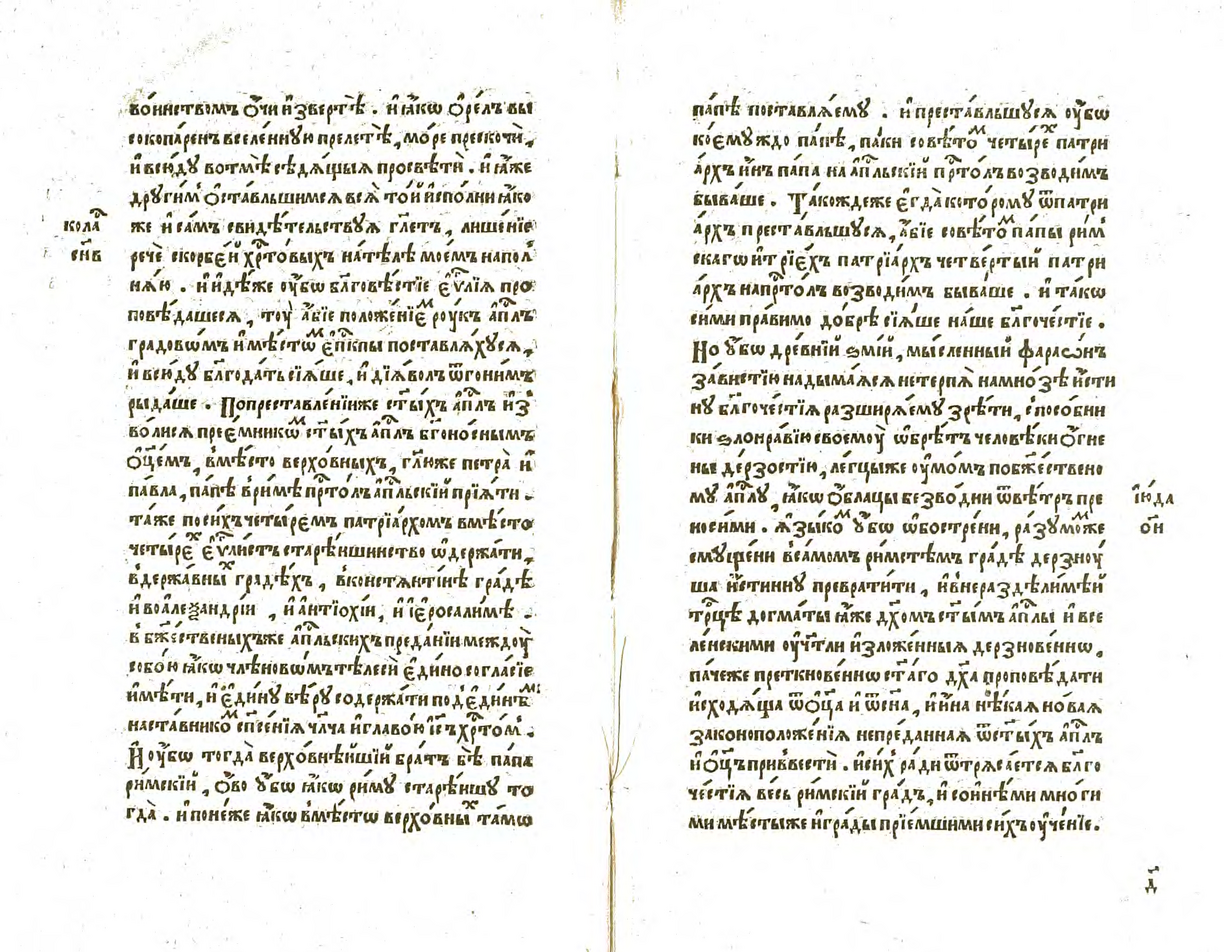 во́инствомъ ѻ҆́чи и҆зверте́ . и҆ ꙗ҆́кѡ ѻ҆ре́лъ вы
сокопа́ренъ вселе́нную прелетѐ , мо́ре прескочѝ ,
и҆ всю́ду вотмѣ̀ сѣдѧ́щыѧ просвѣтѝ . и҆ ꙗ҆́же
други́м ѻ҆ста́вльшимсѧ всѧ̀ то́й и҆спо́лни ꙗ҆́ко
кола а҃п
же и҆ са́мъ свидѣ́тельствуѧ гл҃етъ , лише́нїе
сн҃в
речѐ скорбе́й хр҃то́выхъ на́тѣлѣ мое́мъ напол
нѧ́ю . и҆ и҆дѣ́же оу҆́бѡ бл҃говѣ́стїе є҆ѵ҃лїѧ про
повѣ́дашесѧ , тоу̀ а҆́бїе положе́нїе́ᴹ роукъ а҆п҃лъ
градовѡ́мъ и҆мѣстѡᴹ є҆пⷭ҇кпы поставлѧ́хусѧ ,
и҆ всю́ду бл҃года́ть сїѧ́ше , и҆ дїѧ́волъ ѿгони́мъ
рыда́ше . Попреставле́нїиже ст҃ы́хъ а҆п҃лъ и҆з̾
во́лисѧ прее́мникѡᴹ ст҃ы́хъ а҆п҃лъ бг҃оно́снымъ
ѻ҆ц҃е́мъ , вмѣ́сто верхо́вныхъ , гл҃ю́же петра̀ и҆
па́вла , па́пѣ в̾ри́мѣ пр҃то́лъ а҆п҃льскїй прїѧ́ти .
та́же поси́хъ четы́ремъ патрїа́рхомъ вмѣ́сто
четы́реˣ є҆ѵ҃ли́стъ старѣ́ишинство ѡ҆держа́ти ,
в̾держа́вныˣ градѣ́хъ , в̾констѧнти́нѣ гра́дѣ
и҆ воале́ѯандрїи , и҆ а҆нтїохі́и , и҆ і҆єросали́мѣ .
в̾ бж҃е́ственыхъже а҆п҃льскихъ преда́нїи междоу̀
собо́ю ꙗ҆́кѡ чле́новѡмъ тѣлесѝ є҆ди́но согла́сїе
и҆мѣ́ти , и҆ є҆ди́ну вѣ́ру содержа́ти под̾ є҆ди́нѣᴹ
наста́вникоᴹ сп҃се́нїѧ чл҃ча и҆ главо́ю і҆с҃ъ хр҃то́м .
И҆ оу҆́бѡ тогда̀ верхо́внѣйшїй бра́тъ бѣ̀ па́па
ри́мскїй , ѻ҆́во ᲂу҆́бѡ ꙗ҆́кѡ ри́му старѣ́ишу то
гда̀ . и҆ поне́же ꙗ҆́кѡ вмѣ́стѡ верхо́вныˣ та́мѡ
па́пѣ поставлѧ́ему . и҆ преста́вльшусѧ оу҆́бѡ
кое́муждо па́пѣ , па́ки совѣ́тоᴹ четы́реˣ патри
а́рхъ и҆́нъ па́па на а҆п҃льскїй пр҃то́лъ возводи́мъ
быва́ше . Та́кождеже є҆гда̀ кото́рому ѿ патри
а́рхъ преста́вльшусѧ , а҆́бїе совѣ́тоᴹ па́пы ри́м
скагѡ и҆ трїе́хъ патрїа́рхъ четве́ртый патри
а́рхъ на пр҃то́лъ возводи́мъ быва́ше . и҆ та́кѡ
си́ми пра́вимо до́брѣ сїѧ́ше на́ше бл҃гоче́стїе .
Но ᲂу҆́бѡ дре́внїй ѕмі́й , мы́сленный фараѡ́нъ
за́вистїю надыма́ѧсѧ нетерпѧ̀ намно́зѣ и҆́сти
ну бл҃гоче́стїѧ разширѧ́ему зрѣ́ти , спосо́бни
ки ѕлонра́вїю своемоу̀ ѡ҆брѣ́тъ человѣ́ки ѻ҆́гне
ны де́рзостїю , ле́гцыже оу҆мо́мъ побж҃е́ствено
му а҆п҃лу , ꙗ҆́кѡ ѻ҆́блацы безво́дни ѿвѣ́тръ пре
і҆ю́да
но́сими . ꙗ҆зы́коᴹ ᲂу҆́бѡ ѡ҆бостре́ни , ра́зумоᴹже
о҃н
смуще́ни в̾са́момъ ри́мстѣмъ гра́дѣ дерзноу́
ша и҆́стинну преврати́ти , и҆ в̾нераздѣли́мѣй
тр҃цѣ догма́ты ꙗ҆́же дх҃омъ ст҃ы́мъ а҆п҃лы и҆ все
ле́нскими оу҆чт҃ли и҆зложе́нныѧ дерзнове́ннѡ ,
па́чеже преткнове́ннѡ ст҃а́го дх҃а проповѣ́дати
и҆сходѧ́ща ѿ ѻ҆ц҃а̀ и҆ ѿ сн҃а , и҆ и҆́на нѣ́каѧ но́ваѧ
законоположе́нїѧ непре́даннаѧ ѿст҃ы́хъ а҆п҃лъ
и҆ ѻ҆ц҃ъ привве́сти . и҆ си́хъ ра́ди ѿтрѧса́етсѧ бл҃го
че́стїѧ ве́сь ри́мскїй гра́дъ , и҆ сои́нѣми мно́ги
ми мѣ́стыже и҆ гра́ды прїе́мшими си́хъ оу҆че́нїе .
д҃